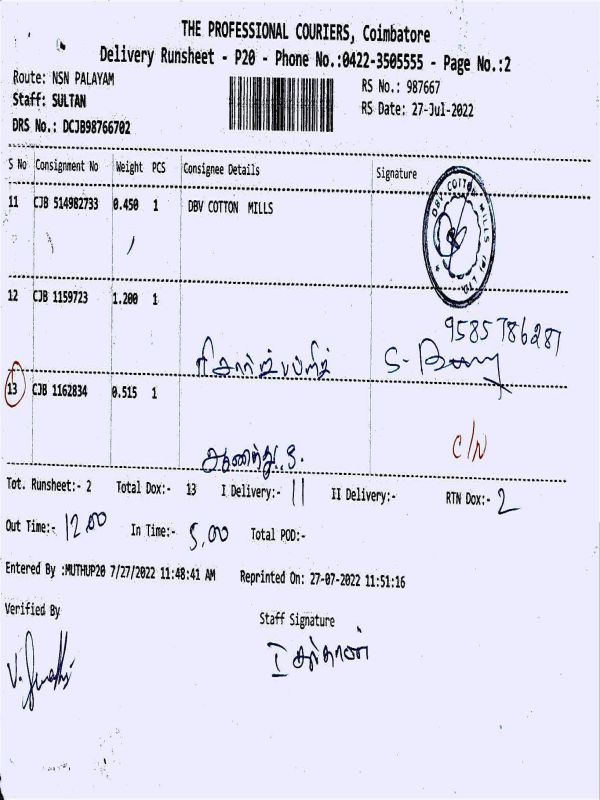 THE PROFESSIONAL COURIERS, Coimbatore
Delivery Runsheet - P20 - Phone No.:0422-3505555 - Page No.:2
Route: NSN PALAYAM
RS No.: 987667
Staff: SULTAN
RS Date: 27-Jul-2022
DRS No.: DCJB98766702
S No Consignment No Weight PCS Consignee Details Signature
11 CJB 514982733 0.450 1 DBV COTTON MILLS
DBV COTTON MILLS (P) LTD.
12 CJB 1159723 1.200 1
9585786287
13 CJB 1162834 0.515 1
C/N
Tot. Runsheet:- 2 Total Dox:- 13 I Delivery:- 11 II Delivery:- RTN Dox:- 2
Out Time:- 12.00 In Time:- 5.00 Total POD:-
Entered By :MUTHUP20 7/27/2022 11:48:41 AM Reprinted On: 27-07-2022 11:51:16
Verified By
Staff Signature
I சுல்தான்